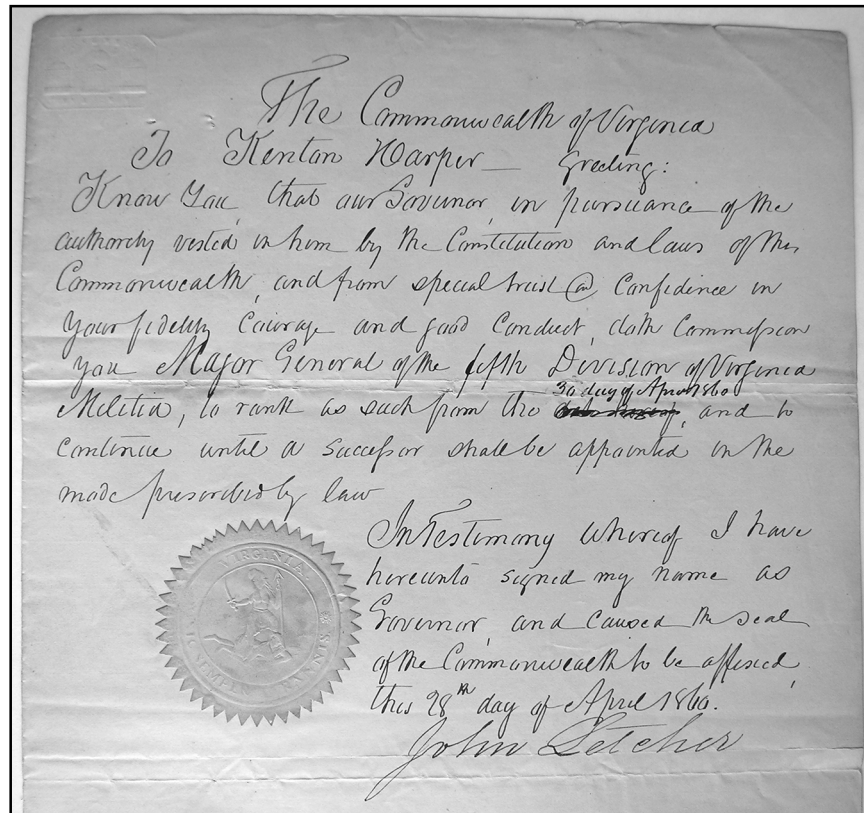 The Commonwealth of Virginia
To Kenton Harper — Greeting:
Know You, that our Governor, in pursuance of the
authority vested in him by the Constitution and laws of this
Commonwealth, and from special trust and confidence in
your fidelity courage and good conduct, doth commission
you Major General of the fifth Division of Virginia
30 day of April 1860
Militia, to rank as such from the , and to
continue until a successor shall be appointed in the
mode prescribed by law
In Testimony whereof I have
hereunto signed my name as
Governor, and caused the seal
of the Commonwealth to be affixed,
this 28th day of April 1860.
John Letcher
VIRGINIA
SIC SEMPER TYRANNIS